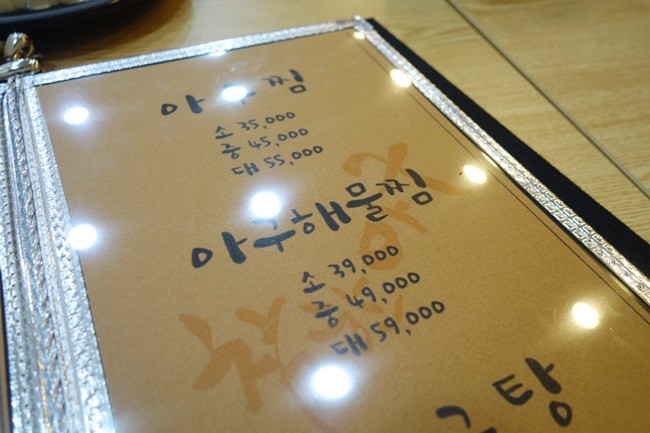 아구찜
소 35,000
중 45,000
대 55,000
아구해물찜
소 39,000
중 49,000
대 59,000
탕